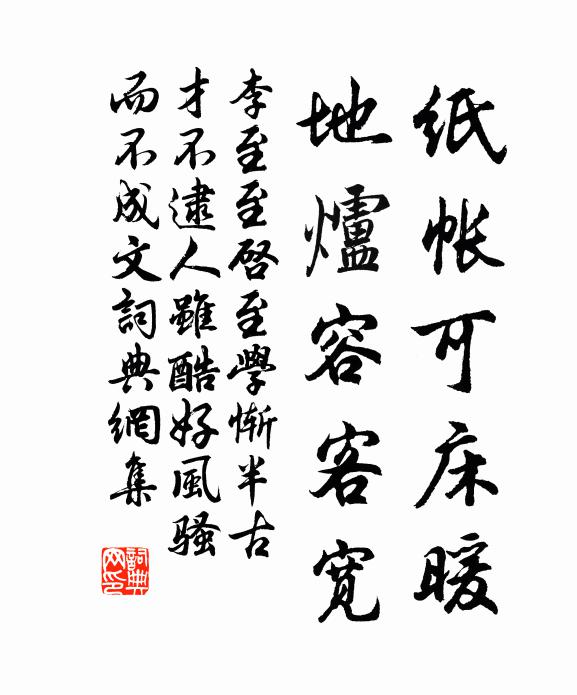 纸帐可床暖
地爐容客寛
李至至啓至學慚半古
才不逮人雖酷好風骚
而不成文詞典網集
詞典
网印